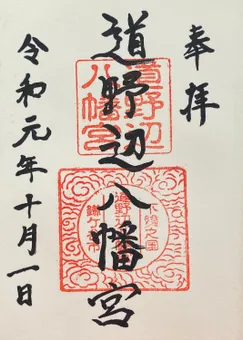 奉拝
道野辺八幡宮
令和元年十月一日
道野辺
八幡宮